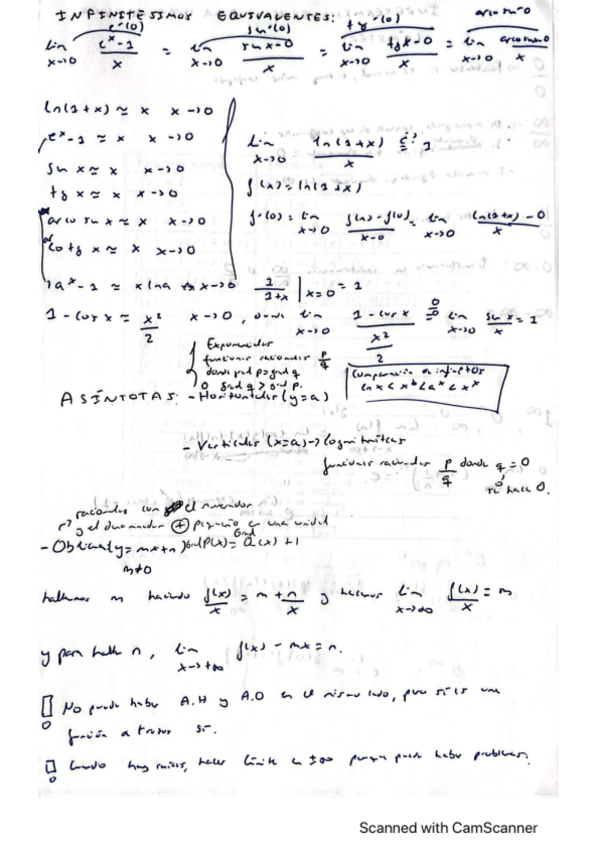 INFINITESIMOS EQUIVALENTES:
e'(0) sin'(0) tg'(0) arcsin'0
lim x→0 (e^x-1)/x = lim x→0 (sin x-0)/x = lim x→0 (tg x-0)/x = lim x→0 /x
ln(1+x) ≈ x x→0
e^x-1 ≈ x x→0
sin x ≈ x x→0
tg x ≈ x x→0
arco sin x ≈ x x→0
cotg x ≈ x x→0
a^x-1 ≈ x ln a x→0
lim x→0 ln(1+x)/x ¿=? 1
f(x)=ln(1+x)
f'(0)= lim x→0 (f(x)-f(0))/(x-0) = lim x→0 (ln(1+x)-0)/x
1/(1+x) | x=0 = 1
1-cos x ≈ x²/2 x→0, donde lim x→0 (1-cos x)/(x²/2) = 0/0 = lim x→0 sin x/x = 1
Exponenciales
funciones racionales p/q
donde grad p=grad q
o grad q > grad p.
Comparación de infinitos
ln x < x^b < a^x < x^x
ASÍNTOTAS: - Horizontales (y=a)
- Verticales (x=a) → logarítmicas
funciones racionales p/q donde q=0
se hace 0.
racionales con el numerador
y el denominador ⊕ pequeño en una unidad
- Oblicua (y=mx+n) grad P(x)= grad Q(x)+1
m≠0
hallamos m haciendo f(x)/x = m + n/x y hacemos lim x→∞ f(x)/x = m
y para hallar n, lim x→+∞ f(x) - mx = n.
No puede haber A.H y A.O en el mismo lado, pero si es una
función a trozos sí.
Cuando hay raíces, hacer límite en ±∞ porque puede haber problemas.
Scanned with CamScanner